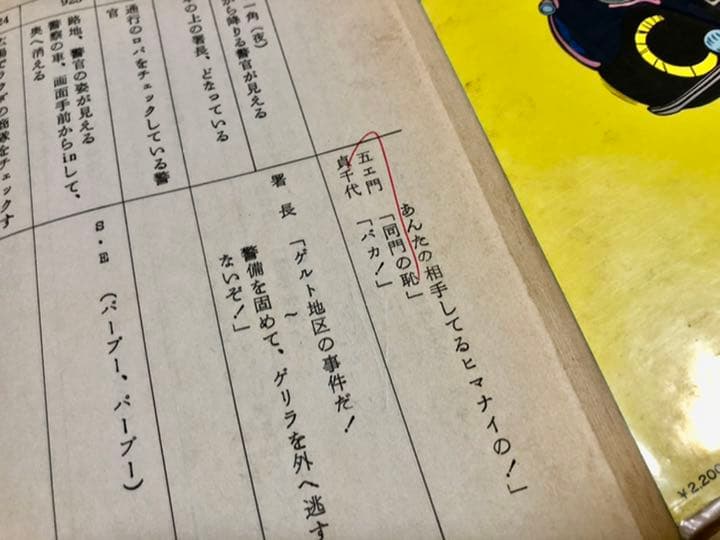 あんたの相手してるヒマナイの！」
五ェ門「同門の恥」
貞千代「バカ！」
署長「ゲルト地区の事件だ！
～
警備を固めて、ゲリラを外へ逃す
ないぞ！」
S・E（パープー、パープー）
一角（夜）
から降りる警官が見える
の上の署長、どなっている
通行のロバをチェックしている警
官
路地、警官の姿が見える
警察の車、画面手前からinして、
奥へ消える
924
¥2,200